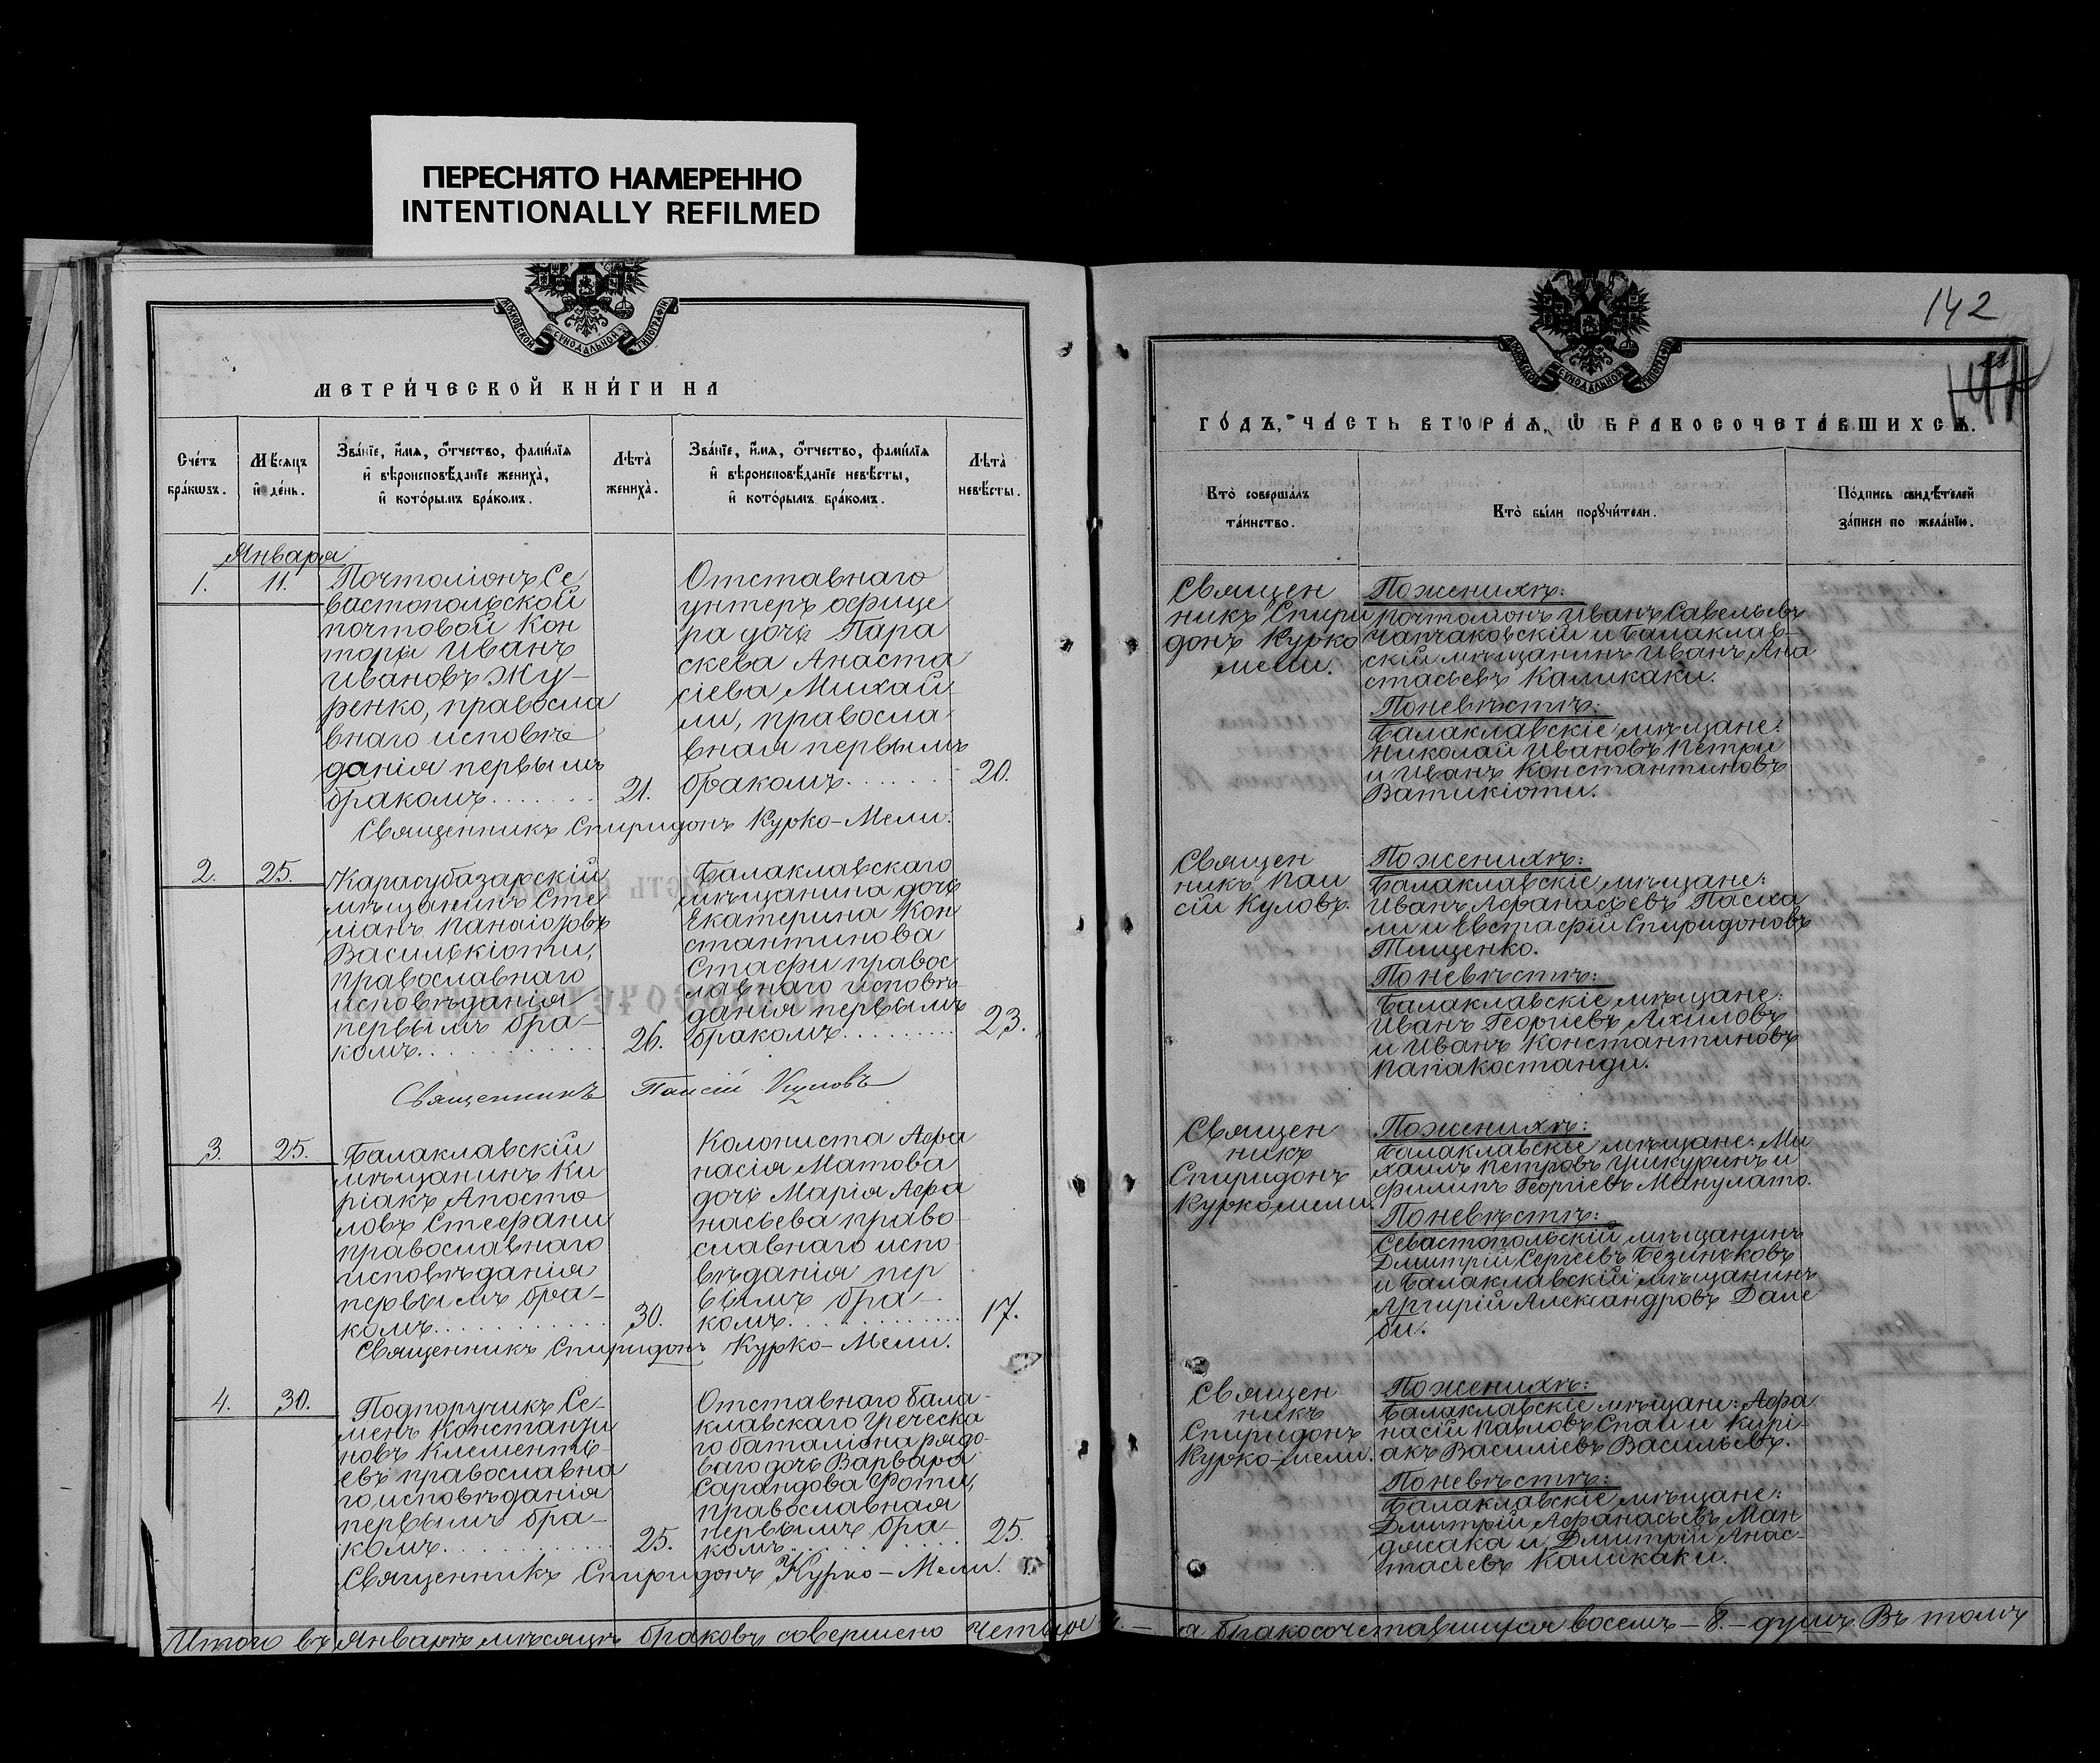 ПЕРЕСНЯТО НАМЕРЕННО
INTENTIONALLY REFILMED
МОСКОВСКОЙ СѴНОДАЛЬНОЙ ТИПОГРАФІИ
МЕТРИ́ЧЕСКОЙ КНИ́ГИ НА
Сче́тъ
бра́кѡвъ.
Мѣ́сяцъ
и҆ де́нь.
Зва́нїе, и҆́мѧ, ѻ҆́тчество, фами́лїѧ
и҆ вѣроисповѣ́данїе жениха̀,
и҆ кото́рымъ бра́комъ.
Лѣ́та
жениха̀.
Зва́нїе, и҆́мѧ, ѻ҆́тчество, фами́лїѧ
и҆ вѣроисповѣ́данїе невѣ́сты,
и҆ кото́рымъ бра́комъ.
Лѣ́та
невѣ́сты.
Января
1.
11.
Почтоліонъ Се
вастопольской
почтовой Кон
торы Иванъ
Ивановъ Жу-
ренко, правосла
внаго исповѣ
данія первымъ
бракомъ.......
21.
Отставнаго
унтеръ офице
ра дочь Пара
скева Анаста
сіева Михай-
ли, правосла
вная первымъ
бракомъ.......
20.
Священникъ Спиридонъ Курко-Мели.
2.
25.
Карасубазарскій
мѣщанинъ Сте
ліанъ Панаіотовъ
Василькіоти,
православнаго
исповѣданія
первымъ бра-
комъ...........
26.
Балаклавскаго
мѣщанина дочь
Екатерина Кон
стантинова
Стафи правос
лавнаго исповѣ
данія первымъ
бракомъ.........
23.
Священникъ Паисій Куловъ
3.
25.
Балаклавскій
мѣщанинъ Ки
ріакъ Апосто
ловъ Стефани
православнаго
исповѣданія
первымъ бра-
комъ............
30.
Колониста Афа
насія Матова
дочь Марія Афа
насьева право-
славнаго испо-
вѣданія пер
вымъ бра-
комъ.............
17.
Священникъ Спиридонъ Курко-Мели.
4.
30.
Подпоручикъ Се-
менъ Константи
новъ Клементь-
евъ православна
го исповѣданія
первымъ бра-
комъ............
25.
Отставнаго Бала-
клавскаго Греческа
го баталіона рядо-
ваго дочь Варвара
Сарандова Фоти,
православная
первымъ бра-
комъ............
25.
Священникъ Спиридонъ Курко-Мели.
Итого въ Январѣ мѣсяцѣ браковъ совершено Четыре
142
МОСКОВСКОЙ СѴНОДАЛЬНОЙ ТИПОГРАФІИ
ГО́ДЪ, ЧА́СТЬ ВТОРА́Ѧ, Ѡ҆ БРАКОСОЧЕТА́ВШИХСѦ.
Кто̀ соверша́лъ
та́инство.
Кто̀ бы́ли порꙋчи́тели.
По́дпись свидѣ́телей
за́писи по жела́нїю.
Священ
никъ Спири
донъ Курко
мели.
Поженихѣ:
Почтоліонъ Иванъ Савельевъ
Чапчаковскій и Балаклав-
скій мѣщанинъ Иванъ Ана
стасьевъ Каликаки.
Поневѣстѣ:
Балаклавскіе мѣщане:
Николай Ивановъ Петри
и Иванъ Константиновъ
Ватикіоти.
Священ
никъ Паи
сій Куловъ.
Поженихѣ:
Балаклавскіе мѣщане:
Иванъ Афанасьевъ Пасха
ли и Евстафій Спиридоновъ
Тищенко.
Поневѣстѣ:
Балаклавскіе мѣщане:
Иванъ Георгіевъ Ахиловъ
и Иванъ Константиновъ
Папакостанди.
Священ
никъ
Спиридонъ
Куркомели.
Поженихѣ:
Балаклавскіе мѣщане: Ми
хаилъ Петровъ Чикуринъ и
Филипъ Георгіевъ Манулато.
Поневѣстѣ:
Севастопольскій мѣщанинъ
Дмитрій Сергеевъ
и Балаклавскій мѣщанинъ
Аргирій Александровъ Дале
би.
Священ
никъ
Спиридонъ
Курко-мели.
Поженихѣ:
Балаклавскіе мѣщане: Афа
насій Павловъ Спаи и Кирі-
акъ Василіевъ Васильевъ.
Поневѣстѣ:
Балаклавскіе мѣщане:
Дмитрій Афанасьевъ Ман
джака и Дмитрій Анас-
тасіевъ Каликаки.
а бракосочетавшихся восемь - 8. - душъ. Въ томъ